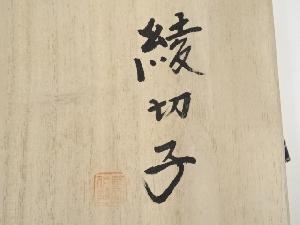 綾切子